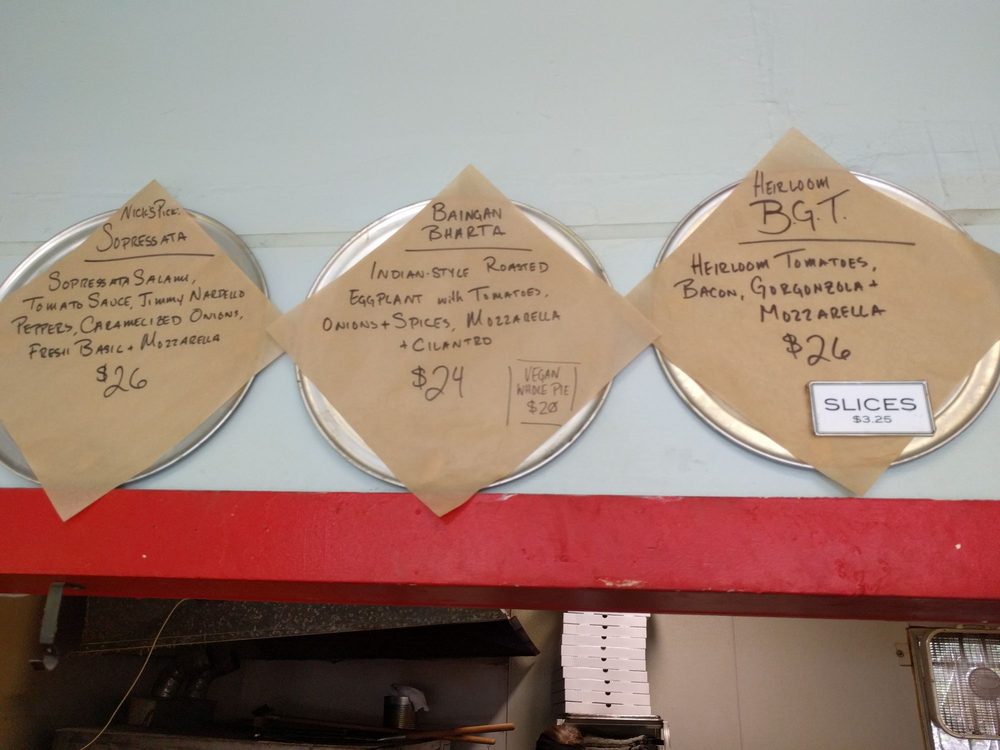 NICK'S PICK:
SOPRESSATA
SOPRESSATA SALAMI,
TOMATO SAUCE, JIMMY NARDELLO
PEPPERS, CARAMELIZED ONIONS,
FRESH BASIL + MOZZARELLA
$26
BAINGAN
BHARTA
INDIAN-STYLE ROASTED
EGGPLANT with TOMATOES,
ONIONS + SPICES, MOZZARELLA
+ CILANTRO
$24
VEGAN
WHOLE PIE
$20
HEIRLOOM
B.G.T.
HEIRLOOM TOMATOES,
BACON, GORGONZOLA +
MOZZARELLA
$26
SLICES
$3.25